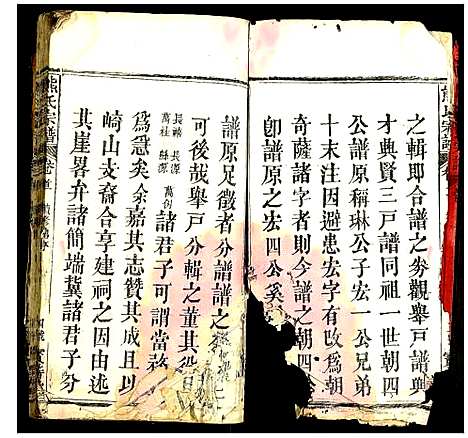 熊氏宗譜
之輯即合譜之劵觀舉戸譜與
才典賢三戸譜同祖一世朝四
公譜原稱琳公子宏一公兄弟
十末注因避患宏字有改爲朝
奇薩諸字者則今譜之朝四
卽譜原之宏四公奚
譜原足徵者分譜譜之
可後哉舉戸分輯之董其役
長嶺 長源 萬
萬柱 諸君子可謂當務
爲急矣余嘉其志贊其成且以
崎山支裔合享建祠之因由述
其崖畧弁諸簡端冀諸君子分
熊氏宗譜 卷首